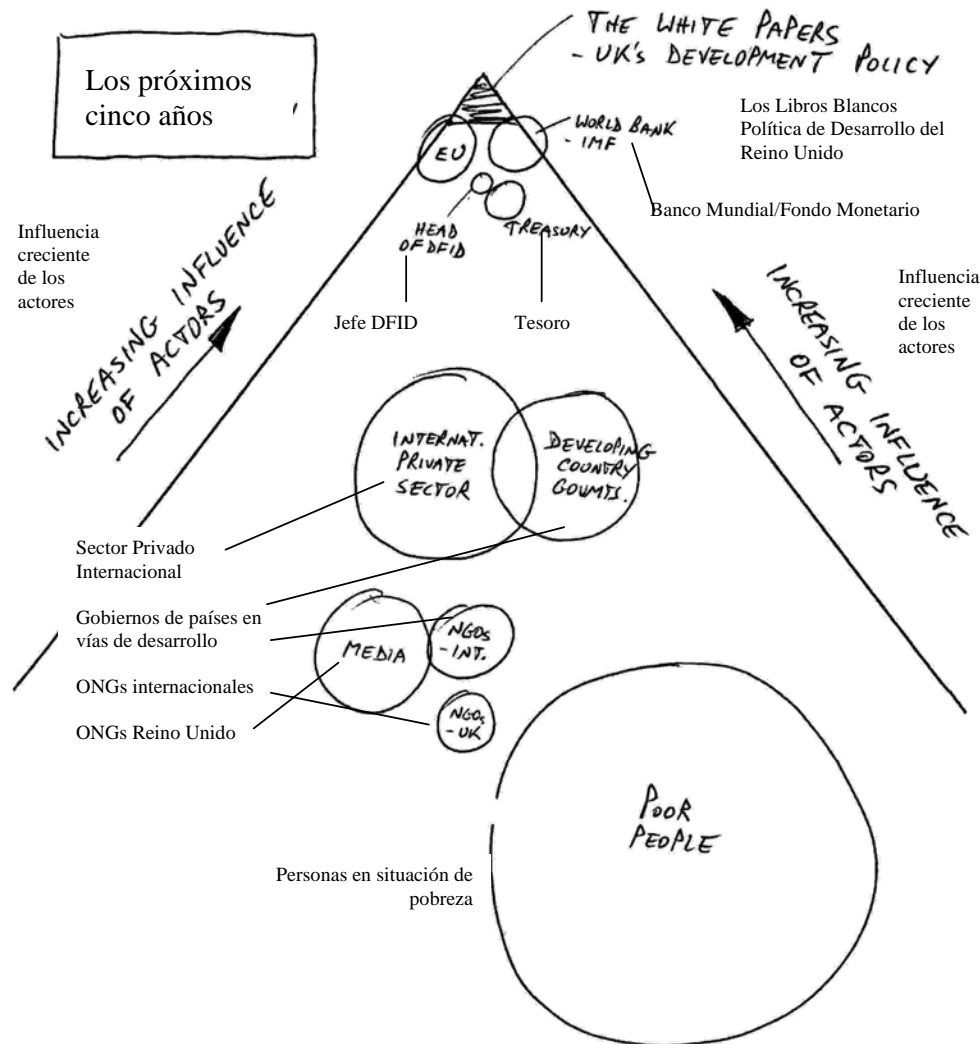 THE WHITE PAPERS
- UK'S DEVELOPMENT POLICY
Los próximos
cinco años
Los Libros Blancos
Política de Desarrollo del
Reino Unido
EU
WORLD BANK
- IMF
Banco Mundial/Fondo Monetario
HEAD
OF DFID
TREASURY
Jefe DFID
Tesoro
Influencia
creciente
de los
actores
INCREASING INFLUENCE
OF ACTORS
Influencia
creciente
de los
actores
INCREASING INFLUENCE
OF ACTORS
INTERNAT.
PRIVATE
SECTOR
DEVELOPING
COUNTRY
GOUMTS.
Sector Privado
Internacional
Gobiernos de países en
vías de desarrollo
MEDIA
NGOs
- INT.
ONGs internacionales
ONGs Reino Unido
NGOs
- UK
POOR
PEOPLE
Personas en situación de
pobreza